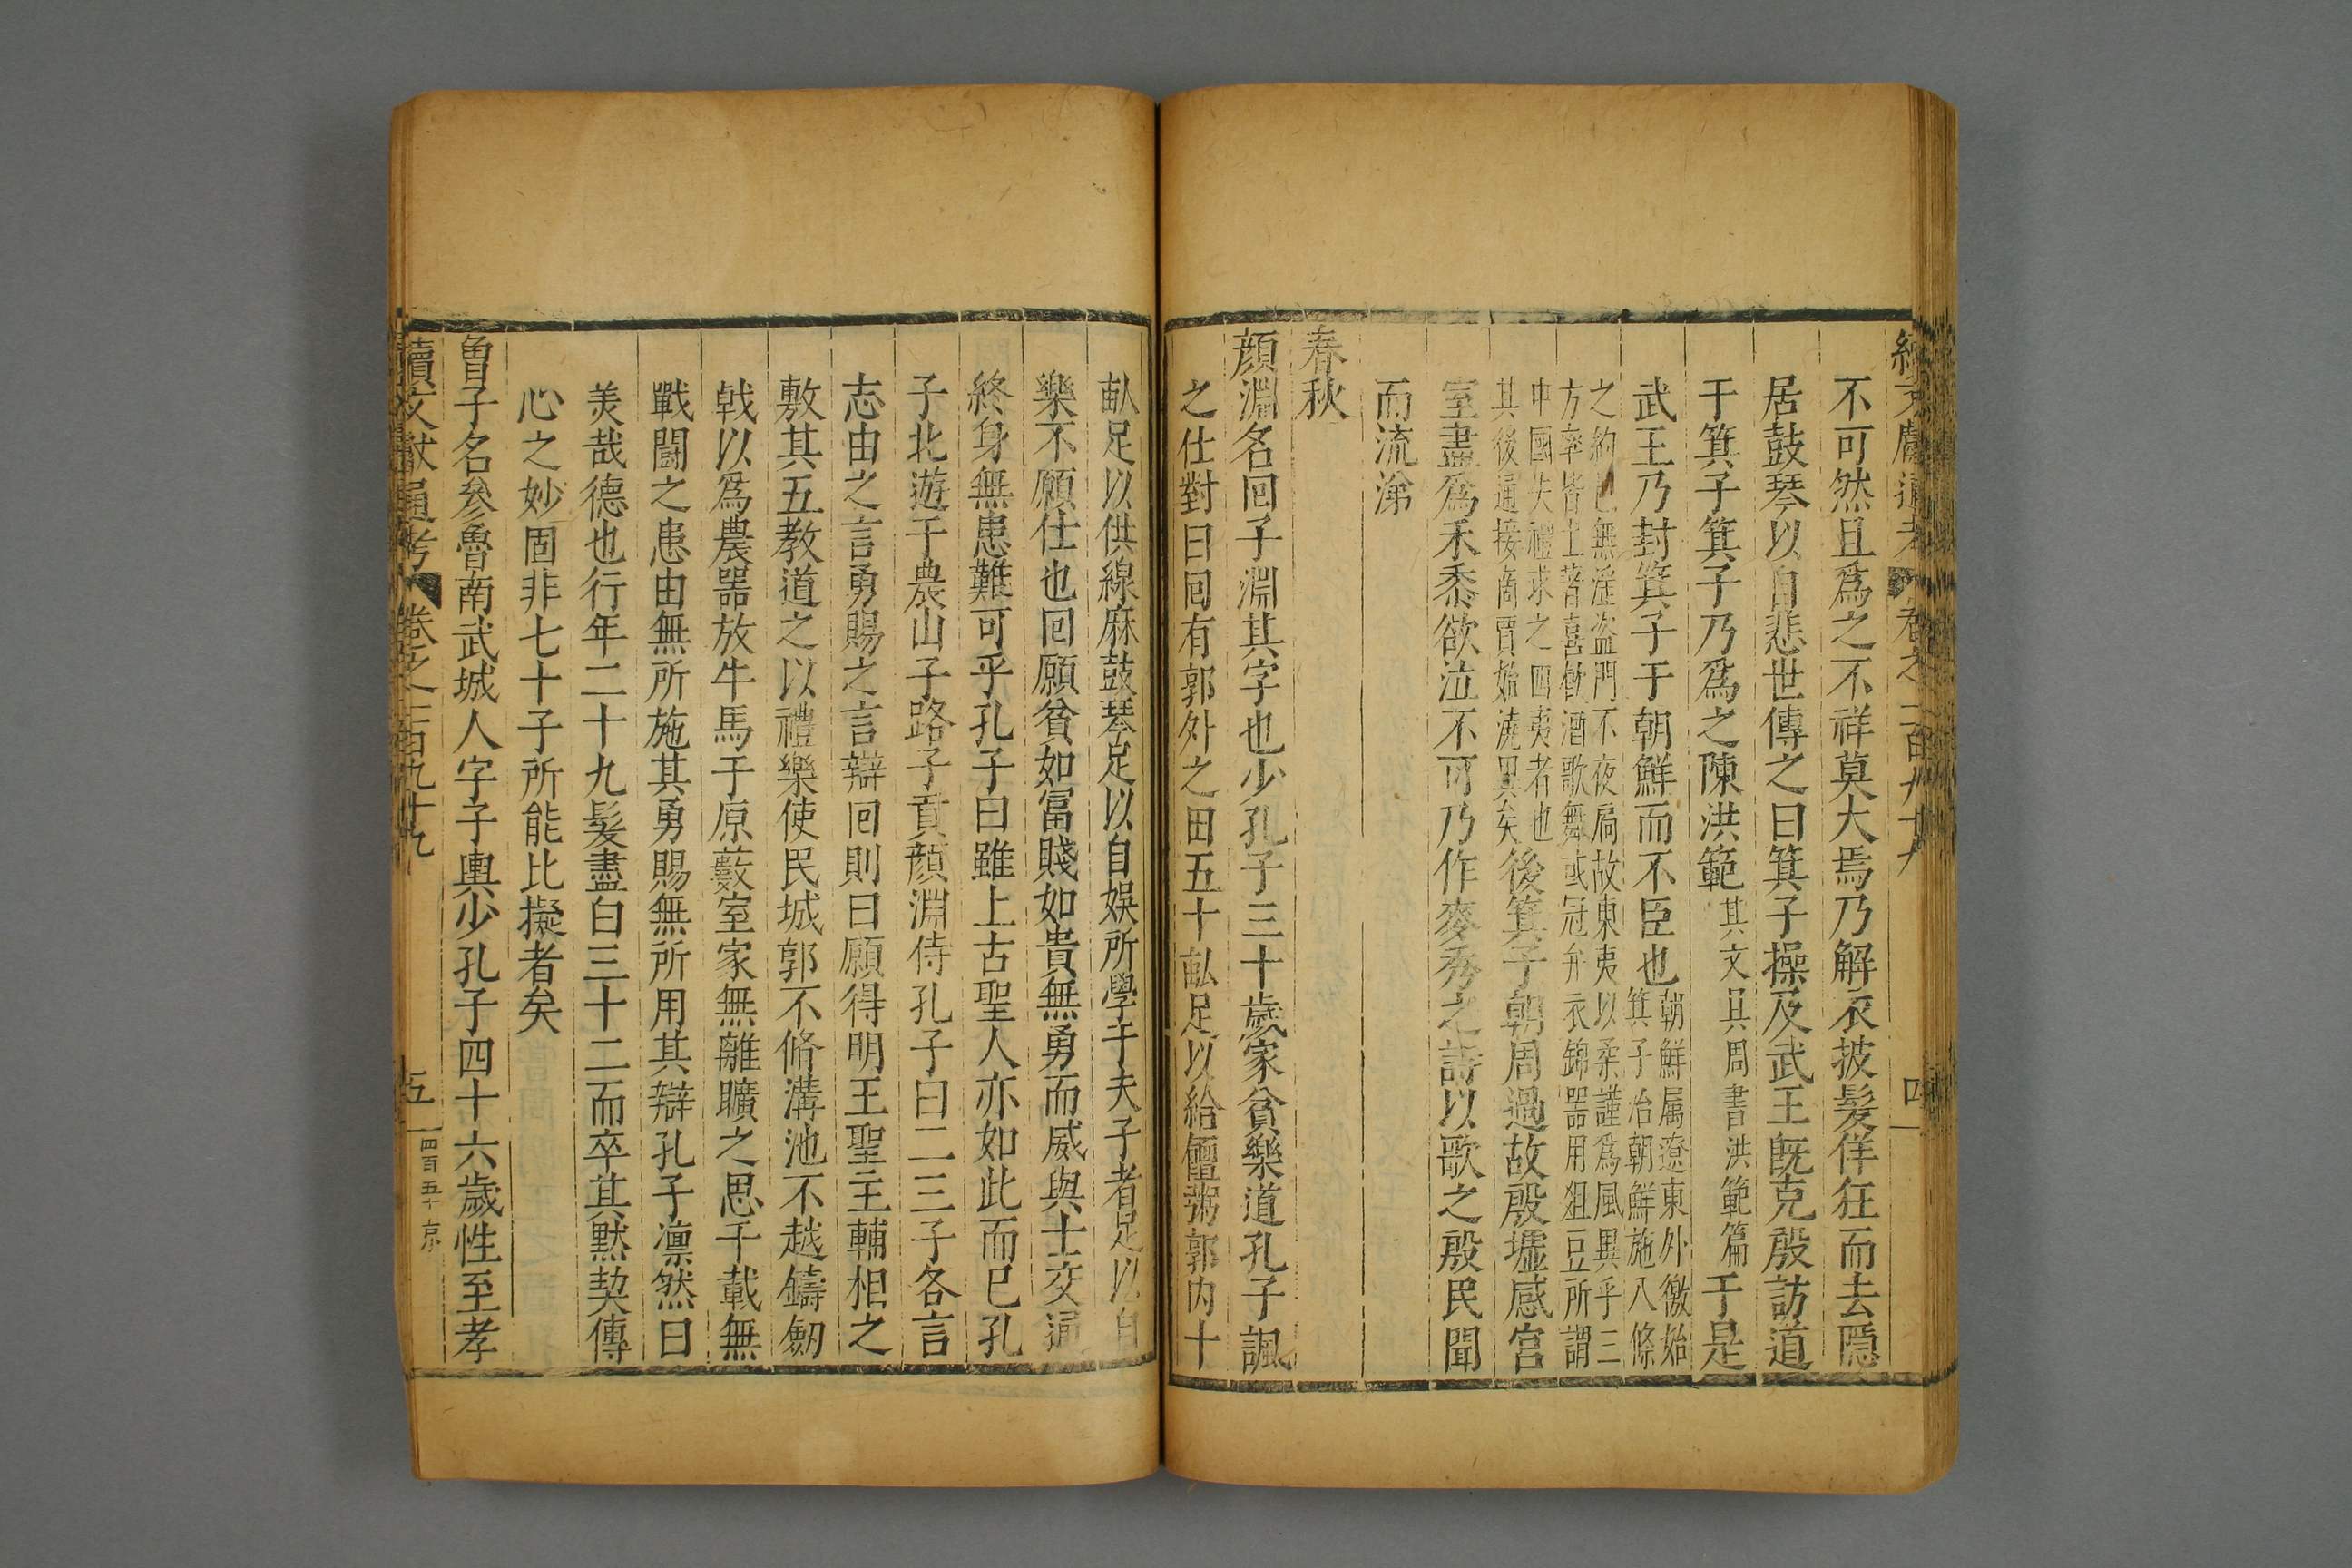 續文獻通考 卷之一百九十九 四
不可然且為之不祥莫大焉乃解衣披髮佯狂而去隱
居鼓琴以自悲世傳之曰箕子操及武王既克殷訪道
于箕子箕子乃為之陳洪範其文具周書洪範篇于是
武王乃封箕子于朝鮮而不臣也朝鮮属遼東外徼始箕子治朝鮮施八條
之約也無淫盗門不夜扃故東夷以柔謹為風異乎三
方率皆土著喜飲酒歌舞或冠弁衣錦噐用俎豆所謂
中國失禮求之四夷者也
其後通接商賈始澆異矣後箕子朝周過故殷墟感宫
室盡為禾黍欲泣不可乃作麥秀之詩以歌之殷民聞
而流涕
春秋
顔淵名回子淵其字也少孔子三十歲家貧樂道孔子諷
之仕對曰回有郭外之田五十畆足以給饘粥郭内十
畆足以供線麻鼓琴足以自娱所學于夫子者足以自
樂不願仕也回願貧如冨賤如貴無勇而威與士交通
終身無患難可乎孔子曰雖上古聖人亦如此而已孔
子北遊于農山子路子貢顔淵侍孔子曰二三子各言
志由之言勇賜之言辯回則曰願得明王聖主輔相之
敷其五教道之以禮樂使民城郭不脩溝池不越鑄劒
戟以為農噐放牛馬于原藪室家無離曠之思千載無
戰鬪之患由無所施其勇賜無所用其辯孔子凛然曰
羙哉德也行年二十九髮盡白三十二而卒其黙契傳
心之妙固非七十子所能比擬者矣
曾子名參魯南武城人字子輿少孔子四十六歲性至孝
續文獻通考 卷之一百九十九 五 四百五十